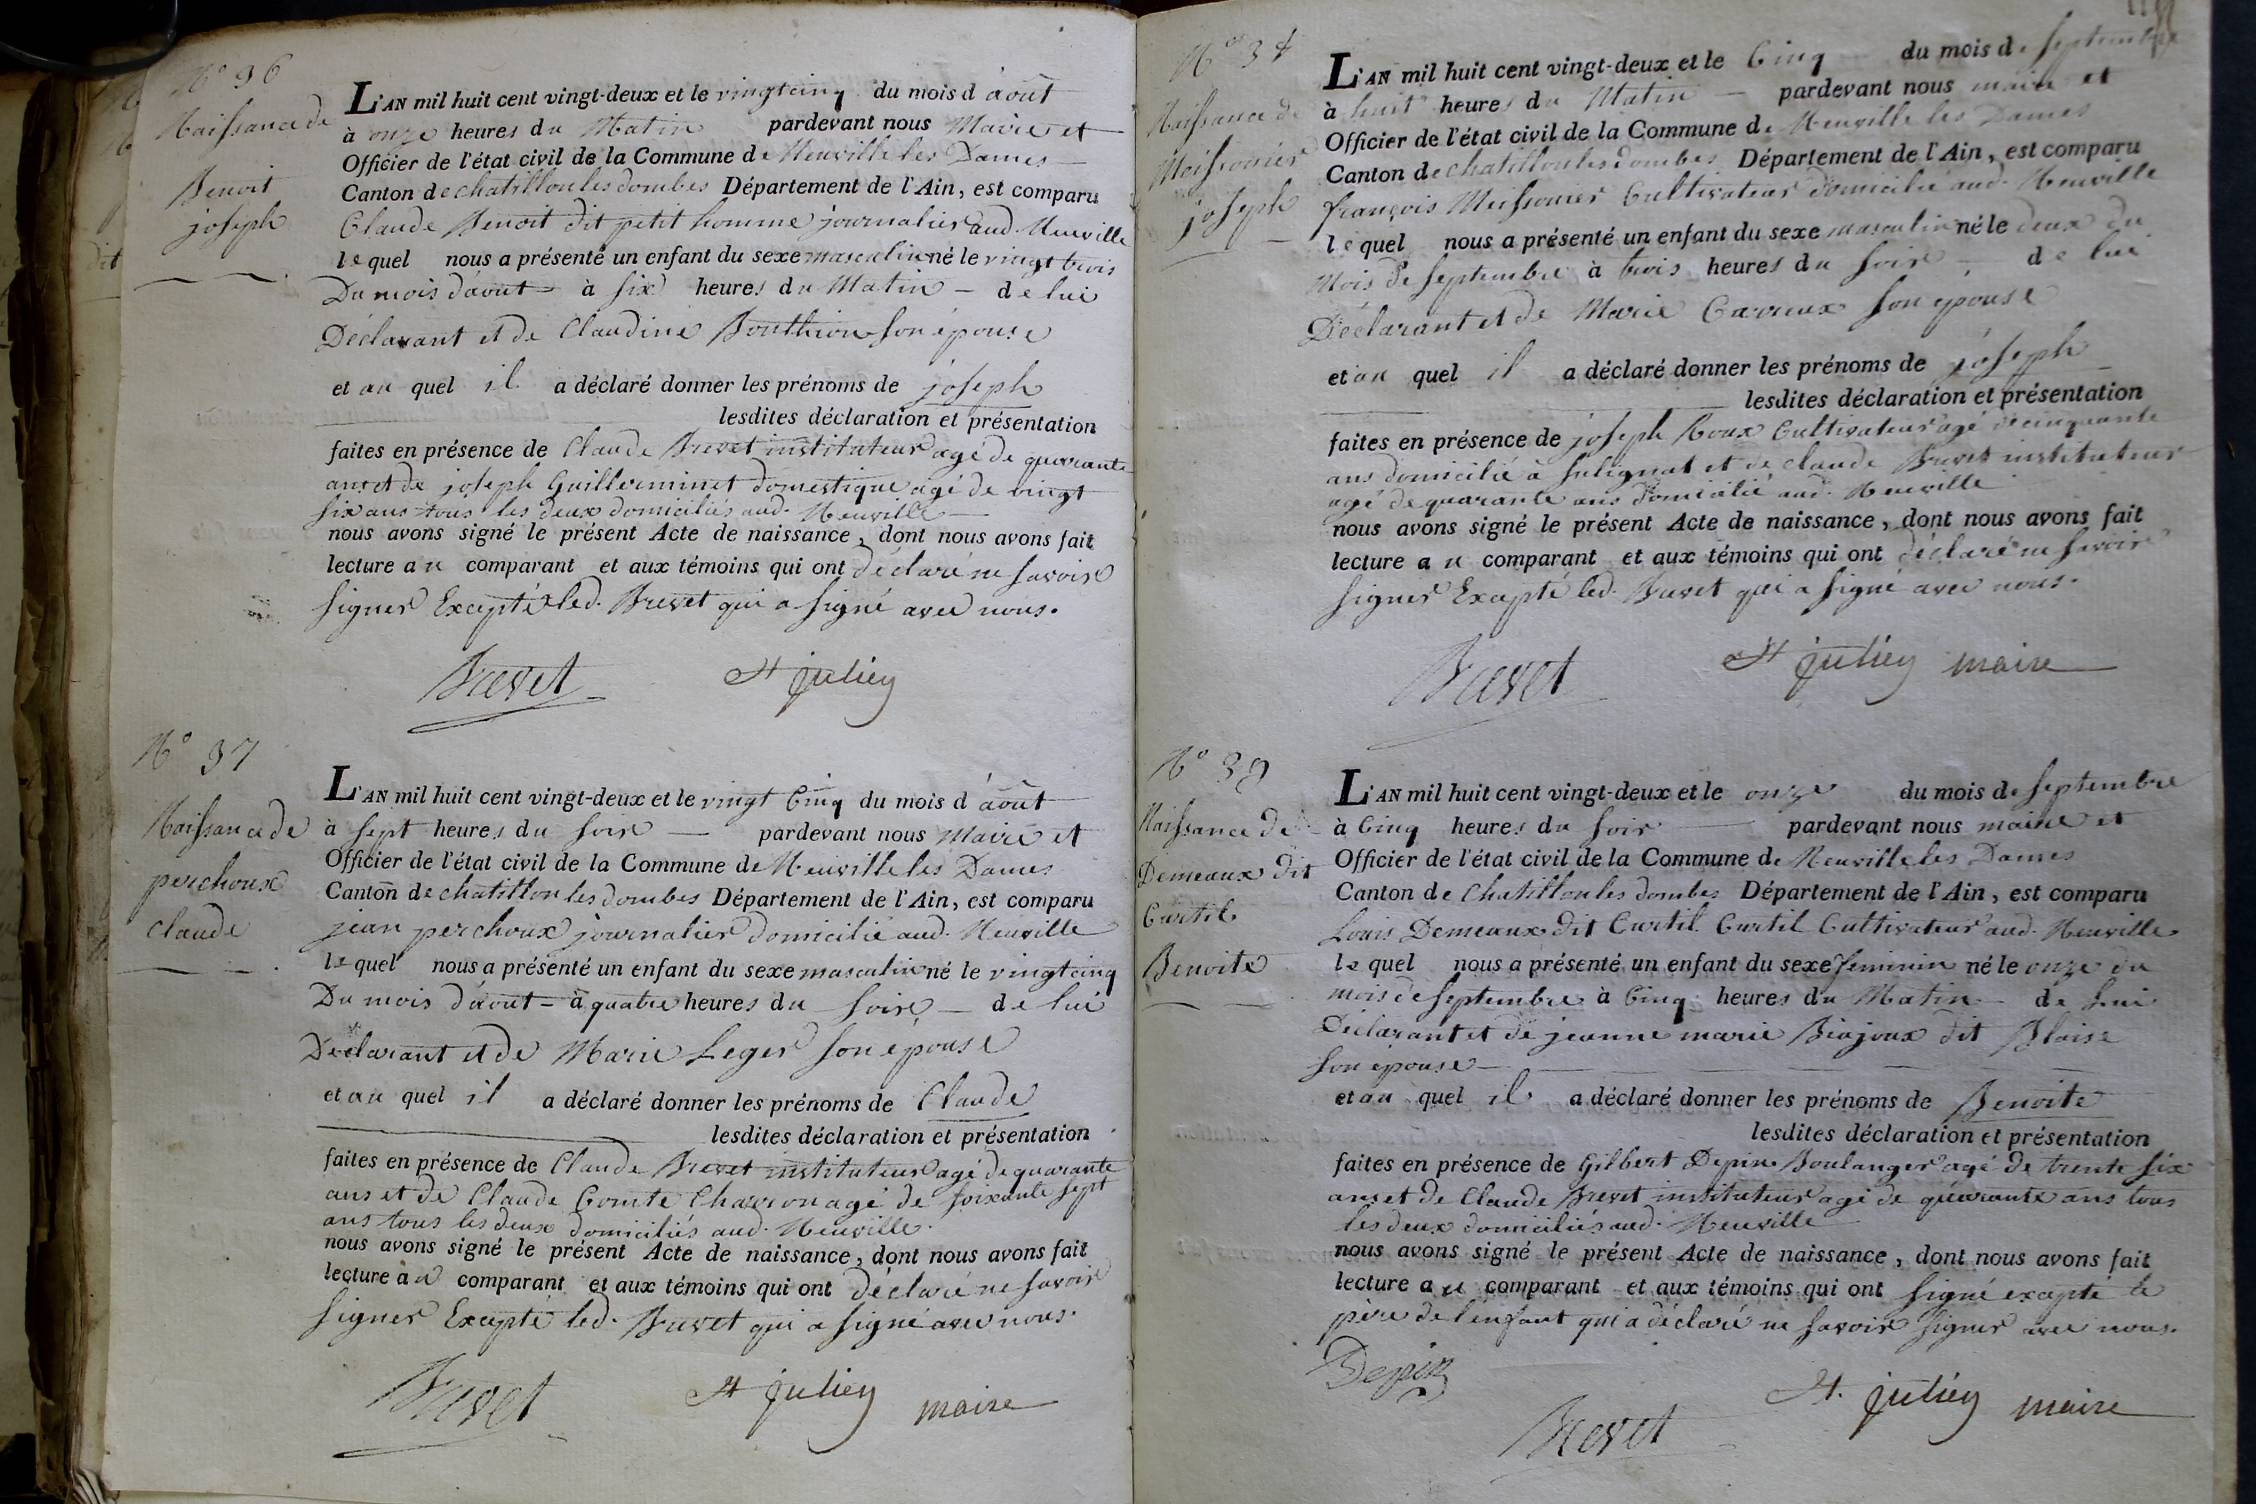 N° 36
Naissance de
Benoit
joseph
L'AN mil huit cent vingt-deux et le vingt cinq du mois d'août
à onze heures du Matin pardevant nous Maire et
Officier de l'état civil de la Commune de Neuville les Dames
Canton de chatillon les dombes Département de l'Ain, est comparu
Claude Benoit dit petit homme journalier aud. Neuville
lequel nous a présenté un enfant du sexe masculin né le vingt trois
Du mois d'août à six heures du Matin - de lui
Déclarant et de Claudine Bouthion son épouse
et au quel il a déclaré donner les prénoms de joseph
lesdites déclaration et présentation
faites en présence de Claude Brevet instituteur agé de quarante
ans et de joseph Guillerminet domestique agé de vingt
six ans tous les deux domiciliés aud. Neuville
nous avons signé le présent Acte de naissance, dont nous avons fait
lecture au comparant et aux témoins qui ont déclaré ne savoir
signer Excepté led. Brevet qui a signé avec nous.
Brevet St julien
N° 37
Naissance de
perchoux
claude
L'AN mil huit cent vingt-deux et le vingt cinq du mois d'août
à sept heures du soir pardevant nous Maire et
Officier de l'état civil de la Commune de Neuville les Dames
Canton de chatillon les dombes Département de l'Ain, est comparu
jean perchoux journalier domicilié aud. Neuville
lequel nous a présenté un enfant du sexe masculin né le vingt cinq
Du mois d'août - à quatre heures du soir - de lui
Déclarant et de Marie Leger son épouse
et au quel il a déclaré donner les prénoms de Claude
lesdites déclaration et présentation
faites en présence de Claude Brevet instituteur agé de quarante
ans et de Claude Comte Charron agé de soixante sept
ans tous les deux domiciliés aud. Neuville.
nous avons signé le présent Acte de naissance, dont nous avons fait
lecture au comparant et aux témoins qui ont déclaré ne savoir
signer Excepté led. Brevet qui a signé avec nous.
Brevet St julien maire
N°
Naissance de
Meissonier
joseph
L'AN mil huit cent vingt-deux et le Cinq du mois de septembre
à huit heures du Matin - pardevant nous maire et
Officier de l'état civil de la Commune de Neuville les Dames
Canton de chatillon les dombes Département de l'Ain, est comparu
françois Meissonier Cultivateur domicilié aud. Neuville
lequel nous a présenté un enfant du sexe masculin né le deux du
Mois de septembre à trois heures du soir - de lui
Déclarant et de Marie Carreux son épouse
et au quel il a déclaré donner les prénoms de joseph
lesdites déclaration et présentation
faites en présence de joseph Roux Cultivateur agé de cinquante
ans domicilié à sulignat et de claude Brevet instituteur
agé de quarante ans domicilié aud. Neuville
nous avons signé le présent Acte de naissance, dont nous avons fait
lecture au comparant et aux témoins qui ont déclaré ne savoir
signer Excepté led. Brevet qui a signé avec nous.
Brevet St julien maire
N° 39
Naissance de
Demeaux dit
Curtil
Benoite
L'AN mil huit cent vingt-deux et le onze du mois de septembre
à Cinq heures du soir pardevant nous maire et
Officier de l'état civil de la Commune de Neuville les Dames
Canton de Chatillon les dombes Département de l'Ain, est comparu
Louis Demeaux dit Curtil Curtil Cultivateur aud. Neuville
lequel nous a présenté un enfant du sexe feminin né le onze du
mois de septembre à Cinq heures du Matin - de Lui
Déclarant et de jeanne marie Biajoux dit Blaise
son épouse
et au quel il a déclaré donner les prénoms de Benoite
lesdites déclaration et présentation
faites en présence de Gilbert Depin Boulanger agé de trente six
ans et de Claude Brevet instituteur agé de quarante ans tous
les deux domiciliés aud. Neuville
nous avons signé le présent Acte de naissance, dont nous avons fait
lecture au comparant et aux témoins qui ont signé excepté le
père de l'enfant qui a déclaré ne savoir signer avec nous.
Depin
Brevet St. julien maire